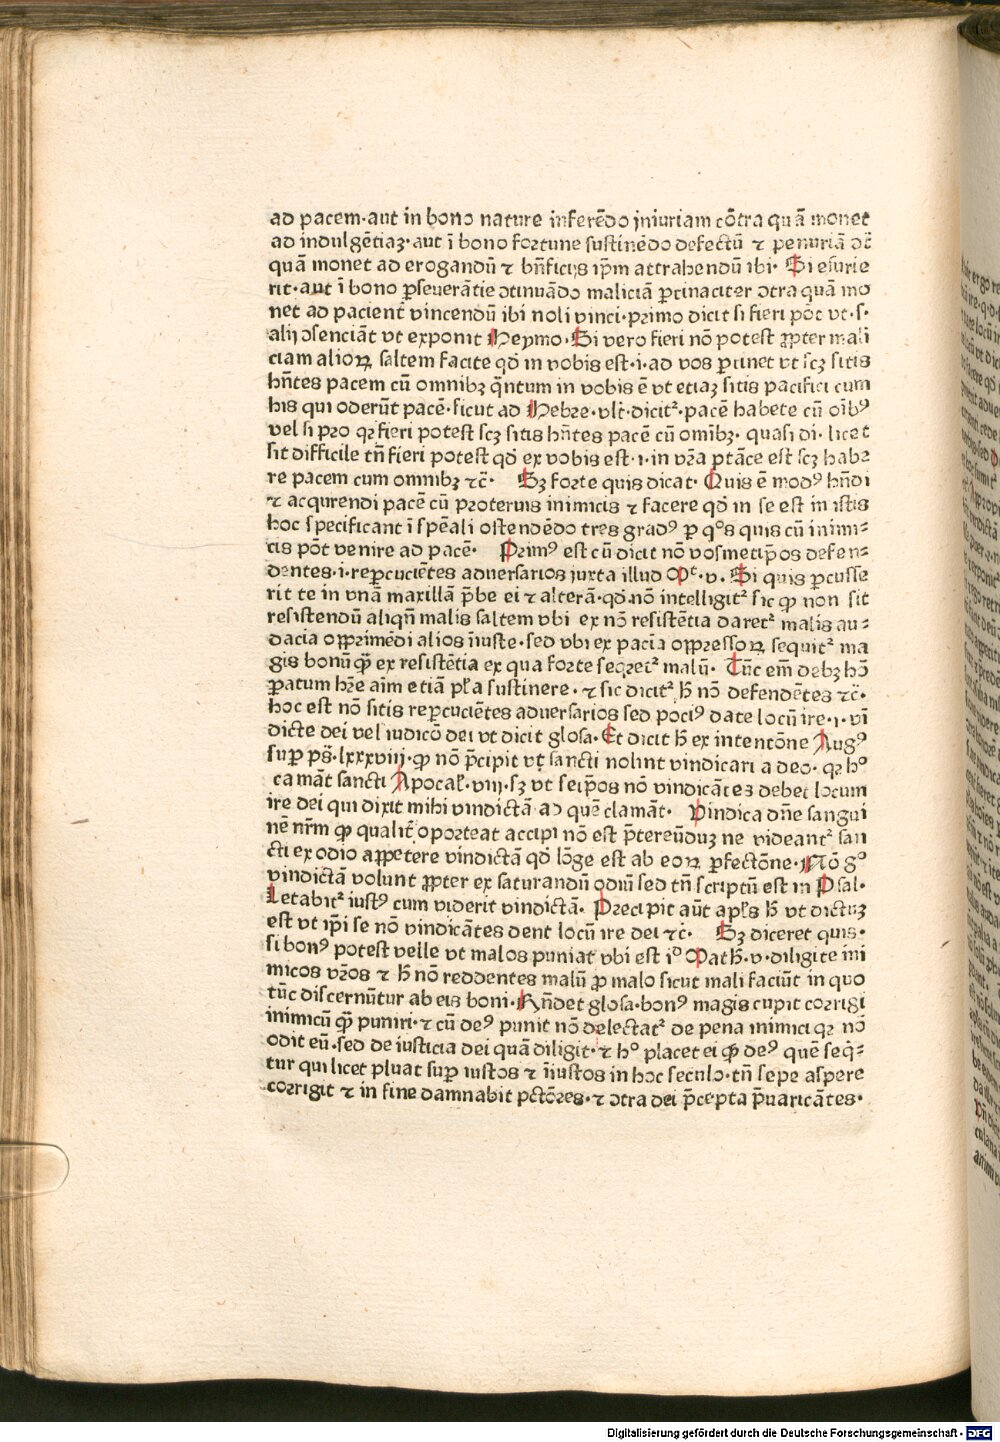 ad pacem·aut in bono nature inferēdo iniuriam cōtra quā monet
ad indulgētiaꝫ·aut ī bono fortune sustinēdo defectū ⁊ penuriā
quā monet ad erogandū ⁊ bn̄ficijs ip̄m attrahendū ibi· Si esurie
rit·aut ī bono ꝑseuerātie ↄtinuādo maliciā ꝑtinaciter ↄtra quā mo
net ad pacient̄ vincendū ibi noli vinci·primo dicit si fieri pōt vt·s·
alij ↄsenciāt vt exponit Heymo·Si vero fieri nō potest ꝓpter mali
ciam alioꝝ saltem facite qd̄ in vobis est·i·ad vos ꝑtinet vt scꝫ sitis
hn̄tes pacem cū omnibꝫ q̄ntum in vobis ē vt etiaꝫ sitis pacifici cum
his qui oderūt pacē·sicut ad Hebre·vlt̄·dicitᷣ·pacē habete cū oībꝰ
vel si pro qꝛ fieri potest scꝫ sitis hn̄tes pacē cū omībꝫ· quasi di· licet
sit difficile tn̄ fieri potest qd̄ ex vobis est·i·in vr̄a ptāce est scꝫ habe
re pacem cum omnibꝫ ⁊c̄· Sꝫ forte quis dicat· Quis ē modꝰ hn̄di
⁊ acqurendi pacē cū proteruis inimicis ⁊ facere qd̄ in se est in istis
hoc specificant ī spēali ostendēdo tres gradꝰ ꝑ qᵒs quis cū inimi⸗
cis pōt venire ad pacē· Primꝰ est cū dicit nō vosmetip̄os defen⸗
dentes·i·reꝑcuciētes aduersarios iuxta illud Mᵗ·v· Si quis ꝑcusse
rit te in vnā maxillā p̄be ei ⁊ alterā·qd̄ nō intelligitᷣ sic ꝙ non sit
resistendū aliqn̄ malis saltem vbi ex nō resistētia daretᷣ malis au⸗
dacia opprimēdi alios īiuste·sed vbi ex pacīa oppressoꝝ sequitᷣ ma
gis bonū ꝙ̄ ex resistētia ex qua forte seq̄reitᷣ malū· Tūc em̄ debꝫ hō
ꝑatum hr̄e aīm etiā pl̄a sustinere·⁊ sic dicitᷣ h̄ nō defendētes ⁊c̄·
hoc est nō sitis reꝑcuciētes aduersarios sed pociꝰ date locū ire·i·vī
dicte dei vel iudicō dei vt dicit glosa·Et dicit h̄ ex intentōne Augꝰ
suꝑ ps̄·lxxxviij·ꝙ nō p̄cipit vt sancti nolint vindicari a deo·qꝛ hᵒ
camāt sancti Apocal̄·viij·sꝫ vt seip̄os nō vindicātes debēt locum
ire dei qui dixit mihi vindictā ad quē clamāt· Vindica dn̄e sangui
nē nr̄m ꝙ qualit̄ oporteat accipi nō est p̄tereūduꝫ ne videantᷣ san
cti ex odio appetere vindictā qd̄ lōge est ab eoꝝ ꝑfectōne·Nō gᵒ
vindictā volunt ꝓpter ex saturandū odiū sed tn̄ scriptū est in Psal·
Letabitᷣ iustꝰ cum viderit vindictā· Precipit aūt apl̄s h̄ vt dictuꝫ
est vt ip̄i se nō vindicātes dent locū ire dei ⁊c̄· Sꝫ diceret quis·
si bonꝰ potest velle vt malos puniat vbi est iᵒ Math̄·v·diligite ini
micos vr̄os ⁊ h̄ nō reddentes malū ꝓ malo sicut mali faciūt in quo
tūc discernūtur ab eis boni·Rn̄det glosa·bonꝰ magis cupit corrigi
inimicū ꝙ̄ puniri·⁊ cū deꝰ punit nō delectatᷣ de pena inimici qꝛ nō
odit eū·sed de iusticia dei quā diligit·⁊ hᵒ placet ei ꝙ deꝰ quē seq̄⸗
tur qui licet pluat suꝑ iustos ⁊ īiustos in hoc seculo·tn̄ sepe aspere
corrigit ⁊ in fine damnabit pctōres·⁊ ↄtra dei p̄cepta p̄uaricātes·
Digitalisierung gefördert durch die Deutsche Forschungsgemeinschaft · DFG